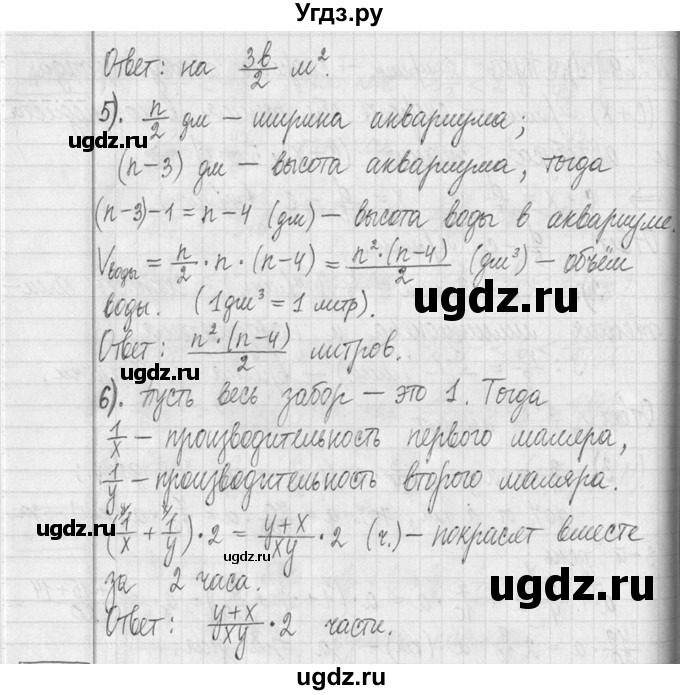 Угдз.ру
Ответ: на 3b/2 м².
5). n/2 дм – ширина аквариума;
(n-3) дм – высота аквариума, тогда
(n-3)-1 = n-4 (дм) – высота воды в аквариуме.
Vводы = n/2 · n · (n-4) = n²·(n-4)/2 (дм³) – объём
воды. (1дм³ = 1 литр).
Ответ: n²·(n-4)/2 литров.
6). Пусть весь забор – это 1. Тогда
1/x – производительность первого маляра,
1/y – производительность второго маляра.
(1/x + 1/y) · 2 = y+x/xy · 2 (ч.) – покрасят вместе
за 2 часа.
Ответ: y+x/xy · 2 части.
ugdz.ru
ugdz.ru
ugdz.ru
ugdz.ru
ugdz.ru
ugdz.ru
ugdz.ru